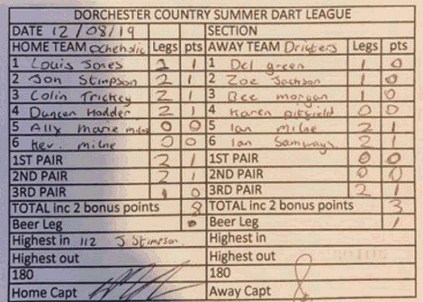 DORCHESTER COUNTRY SUMMER DART LEAGUE
DATE 12/08/19 SECTION
HOME TEAM Legs pts AWAY TEAM Drifters Legs pts
1 Louis Jones 2 1 1 Del green 1 0
2 Jon Stimpson 2 1 2 Zoe Jackson 1 0
3 Colin Trickey 2 1 3 Bee morgan 1 0
4 Duncan Hodder 2 1 4 Karen pitfield 0 0
5 Ally marie milne 0 0 5 Ian milne 2 1
6 Kev. milne 0 0 6 Ian Samways 2 1
1ST PAIR 2 1 1ST PAIR 0 0
2ND PAIR 2 1 2ND PAIR 0 0
3RD PAIR 1 0 3RD PAIR 2 1
TOTAL inc 2 bonus points 8 TOTAL inc 2 bonus points 3
Beer Leg Beer Leg 1
Highest in 112 J Stimpson. Highest in
Highest out Highest out
180 180
Home Capt Away Capt